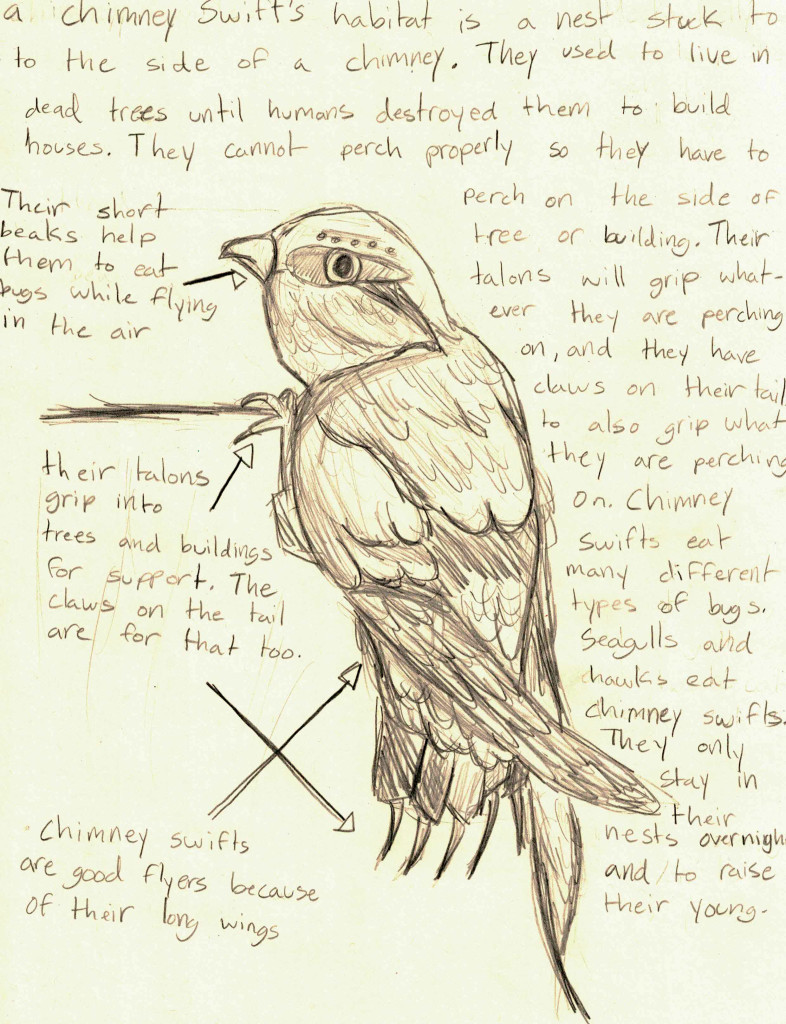 a chimney Swift's habitat is a nest stuck to
to the side of a chimney. They used to live in
dead trees until humans destroyed them to build
houses. They cannot perch properly so they have to
perch on the side of
tree or building. Their
talons will grip what-
ever they are perching
on, and they have
claws on their tail
to also grip what
they are perching
on. Chimney
swifts eat
many different
types of bugs.
Seagulls and
hawks eat
chimney swifts.
They only
stay in
their
nests overnigh
and to raise
their young.
Their short
beaks help
them to eat
bugs while flying
in the air
their talons
grip into
trees and buildings
for support. The
claws on the tail
are for that too.
Chimney swifts
are good flyers because
of their long wings